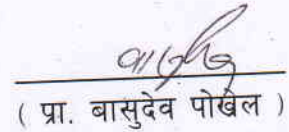 ( प्रा. बासुदेव पोखेल )